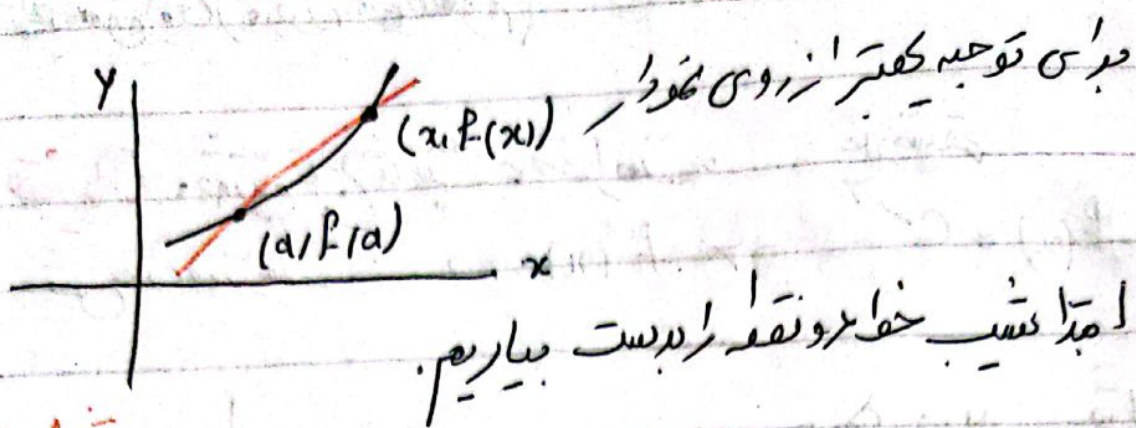 برای توجیه بهتر از روی نمودار
y
(x, f(x))
(a, f(a)
x
ابتدا شیب خط دو نقطه را بدست بیاریم.